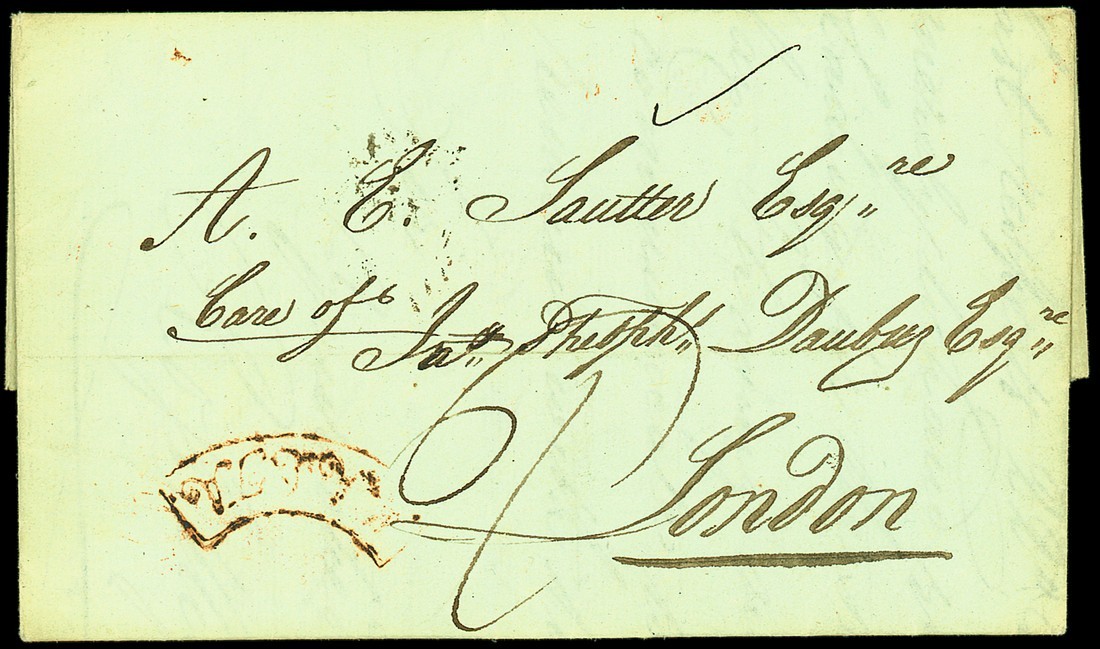 A. E. Sautter Esqre
Care of Jas Theoph Daubuz Esqre
London